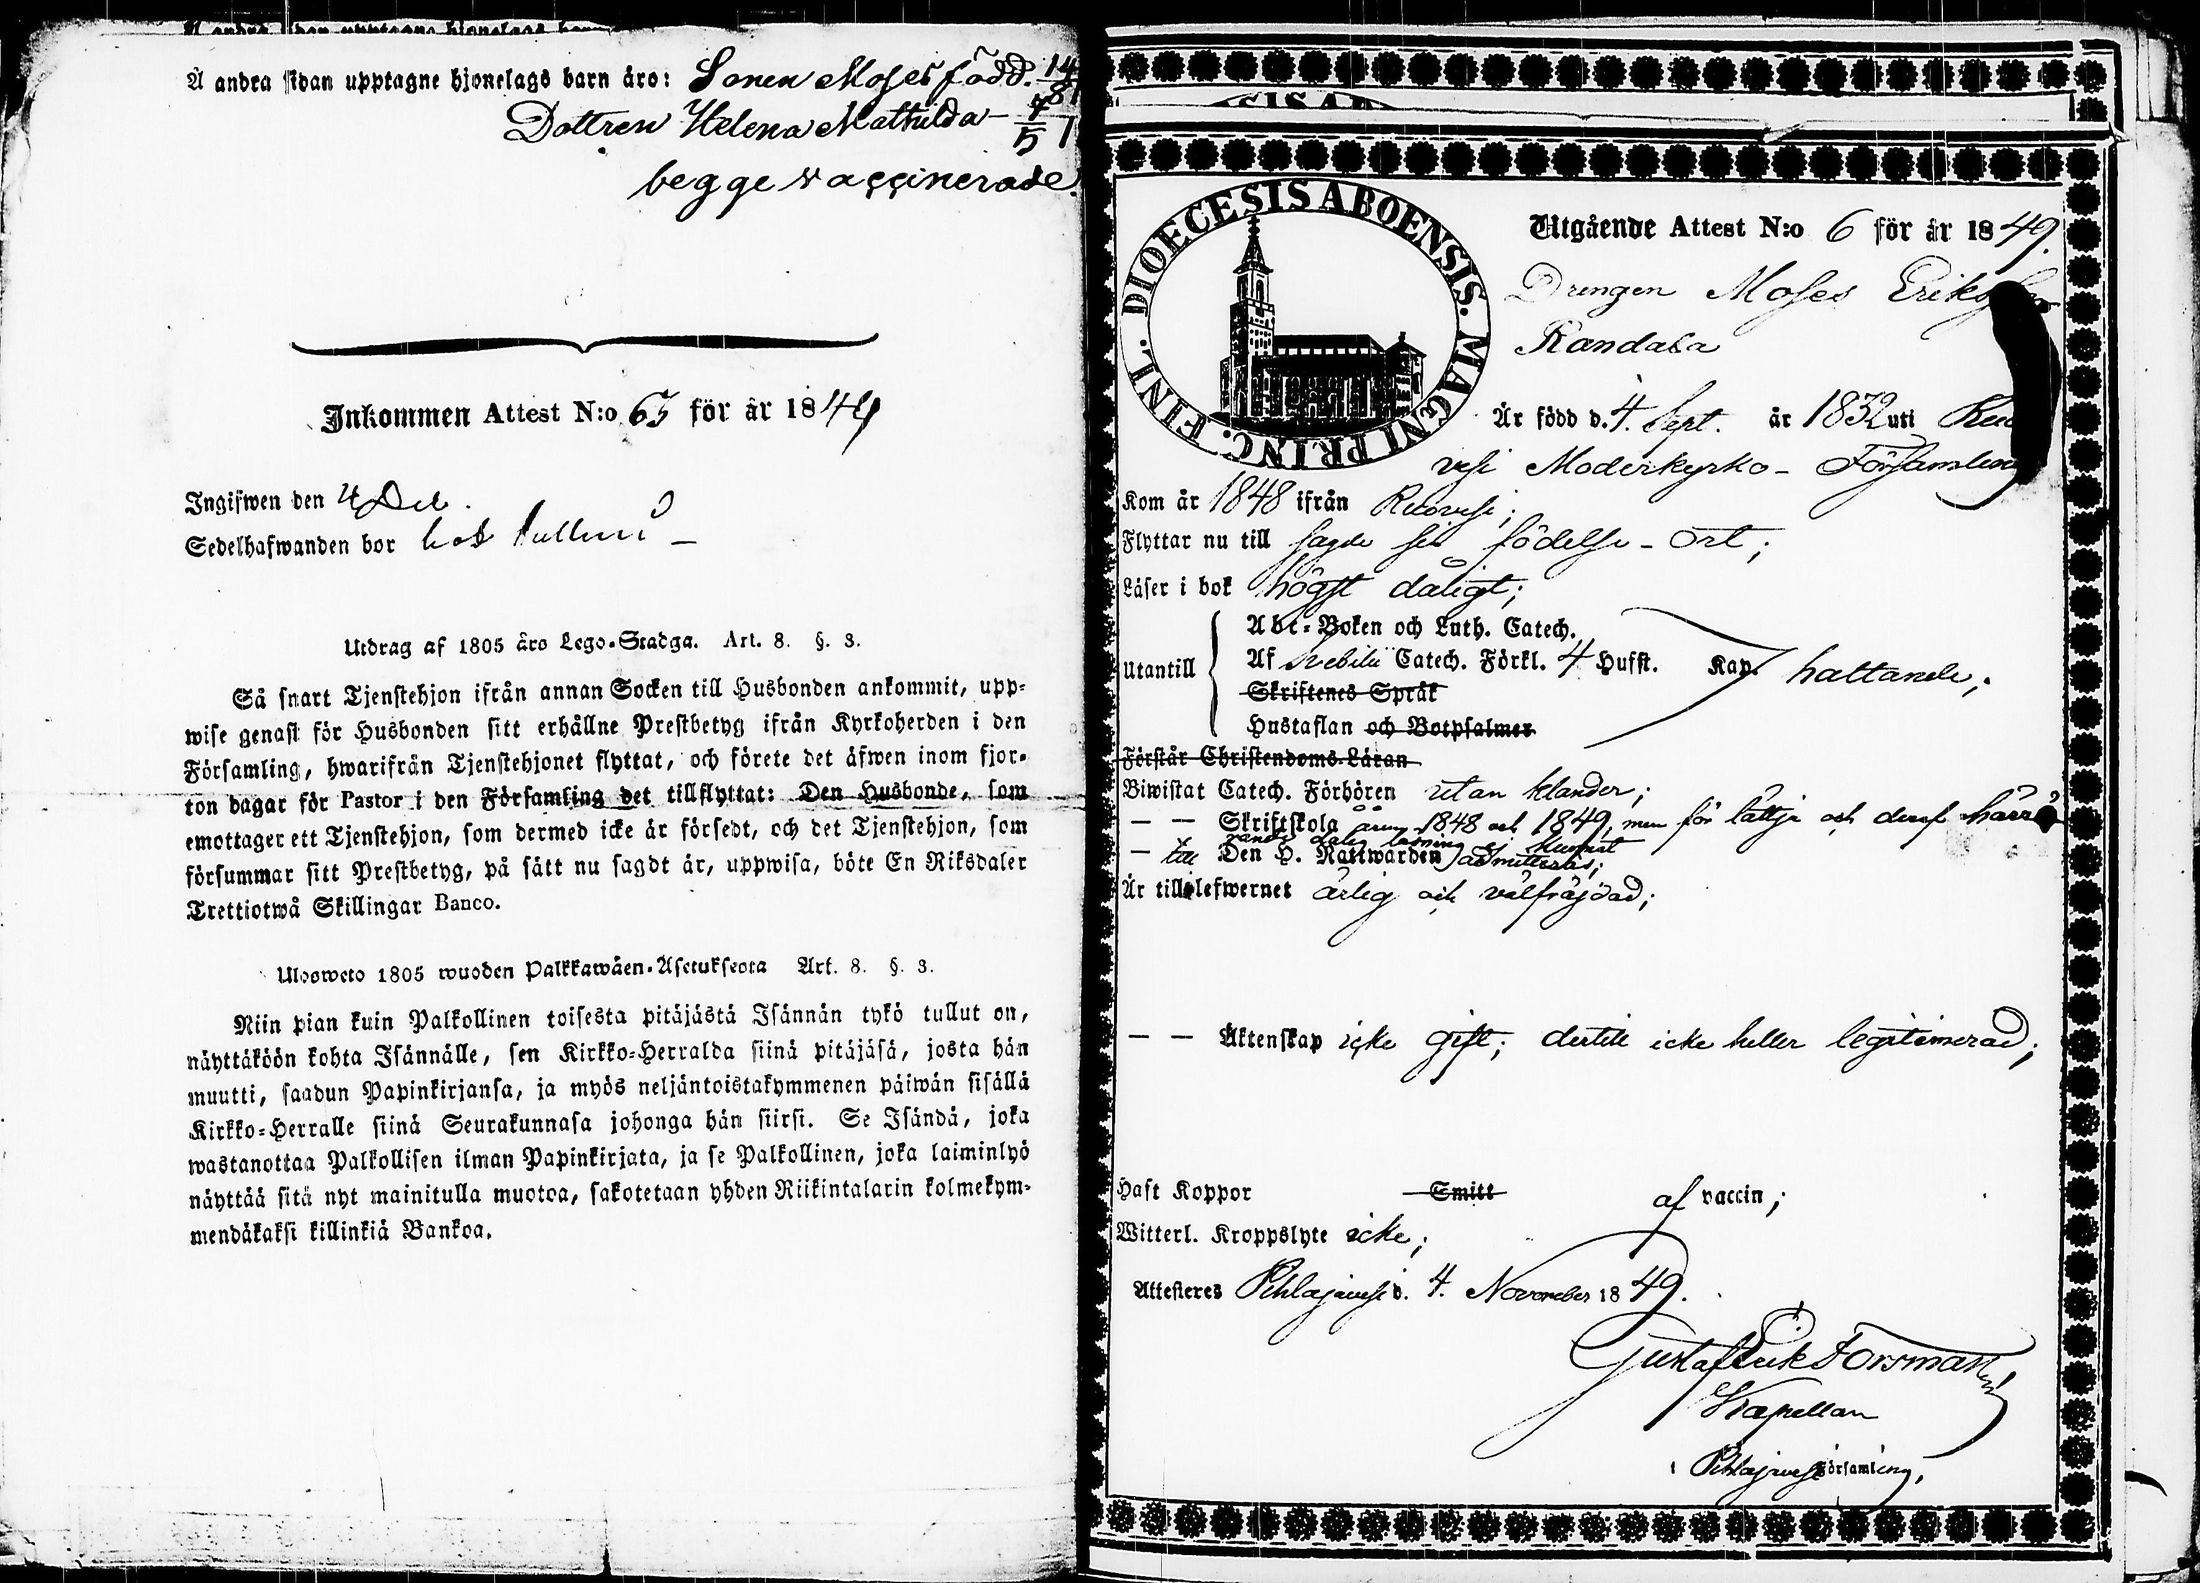 Å andra sidan upptagne hjonelags barn äro: Sonen Moses född. 14/8
Dottren Helena Mathilda – 4/5 1
begge vaccinerade.
Inkommen Attest N:o 63 för år 1849
Ingifwen den 4 Dec.
Sedelhafwanden bor hos
Utdrag af 1805 års Lego-Stadga. Art. 8. §. 3.
Så snart Tjenstehjon ifrån annan Socken till Husbonden ankommit, upp-
wise genast för Husbonden sitt erhållne Prestbetyg ifrån Kyrkoherden i den
Församling, hwarifrån Tjenstehjonet flyttat, och förete det äfwen inom fjor-
ton dagar för Pastor i den Församling det tillflyttat: Den Husbonde, som
emottager ett Tjenstehjon, som dermed icke är försedt, och det Tjenstehjon, som
försummar sitt Prestbetyg, på sätt nu sagdt är, uppwisa, böte En Riksdaler
Trettiotwå Skillingar Banco.
Ulosweto 1805 wuoden Palkkawäen-Asetuksesta Art. 8. §. 3.
Niin pian kuin Palkollinen toisesta pitäjästä Isännän tykö tullut on,
näyttäköön kohta Isännälle, sen Kirkko-Herralda siinä pitäjäsä, josta hän
muutti, saadun Papinkirjansa, ja myös neljäntoistakymmenen päiwän sisällä
Kirkko-Herralle siinä Seurakunnasa johonga hän siirsi. Se Isändä, joka
wastanottaa Palkollisen ilman Papinkirjata, ja se Palkollinen, joka laiminlyö
näyttää sitä nyt mainitulla muotoa, sakotetaan yhden Riikintalarin kolmekym-
mendäkaksi killinkiä Bankoa.
DIOECESIS ABOENSIS. MAGNI PRINC. FINL.
Utgående Attest N:o 6 för år 1849.
Drengen Moses Eriksson
Randala
Är född d. 4. Sept. år 1832 uti Ruo
vesi Moderkyrko-Församling
Kom år 1848 ifrån Ruovesi;
Flyttar nu till sagde sin födelse-ort;
Läser i bok högst dåligt;
Utantill
Abc-Boken och Luth. Catech.
Af Svebilii Catech. Förkl. 4 Hufst. Kap. hattande;
Skriftenes Språk
Hustaflan och Botpsalmer
Förstår Christendoms-Läran
Biwistat Catech. Förhören utan klander;
— — Skriftskola åren 1848 och 1849, men för lättja och deraf härrö
rande dålig läsning ej kunnat
— till Den H. Nattwarden admitteras;
Är till lefwernet ärlig och välfräjdad;
— — Äktenskap icke gift; dertill icke heller legitimerad;
Haft Koppor Smitt af vaccin;
Witterl. Kroppslyte icke;
Attesteres Pihlajavesi d. 4. November 1849.
Gustaf Erik Forsman
Kapellan
i Pihlajavesi Församling.